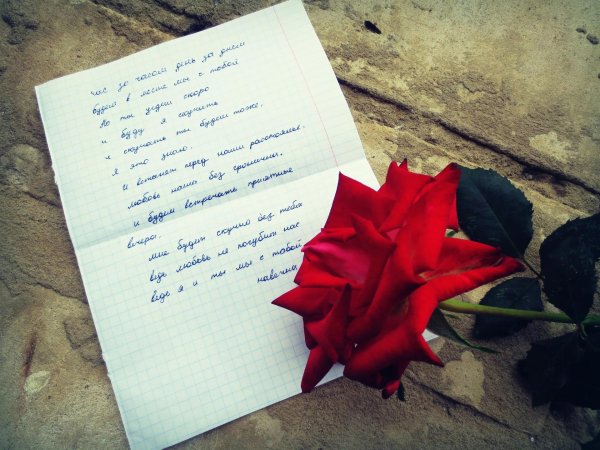 час за часом день за днем
будем в месте мы с тобой
Но ты уедеш скоро
и буду я скучать
и скучать ты будеш тоже.
Я это знаю.
И встанет перед нами расстоянье.
любовь наша без границы.
и будем встречать приятные
вечера.
мне будет скучно без тебя
ведь любовь не погубит нас
ведь я и ты мы с тобой
навечно